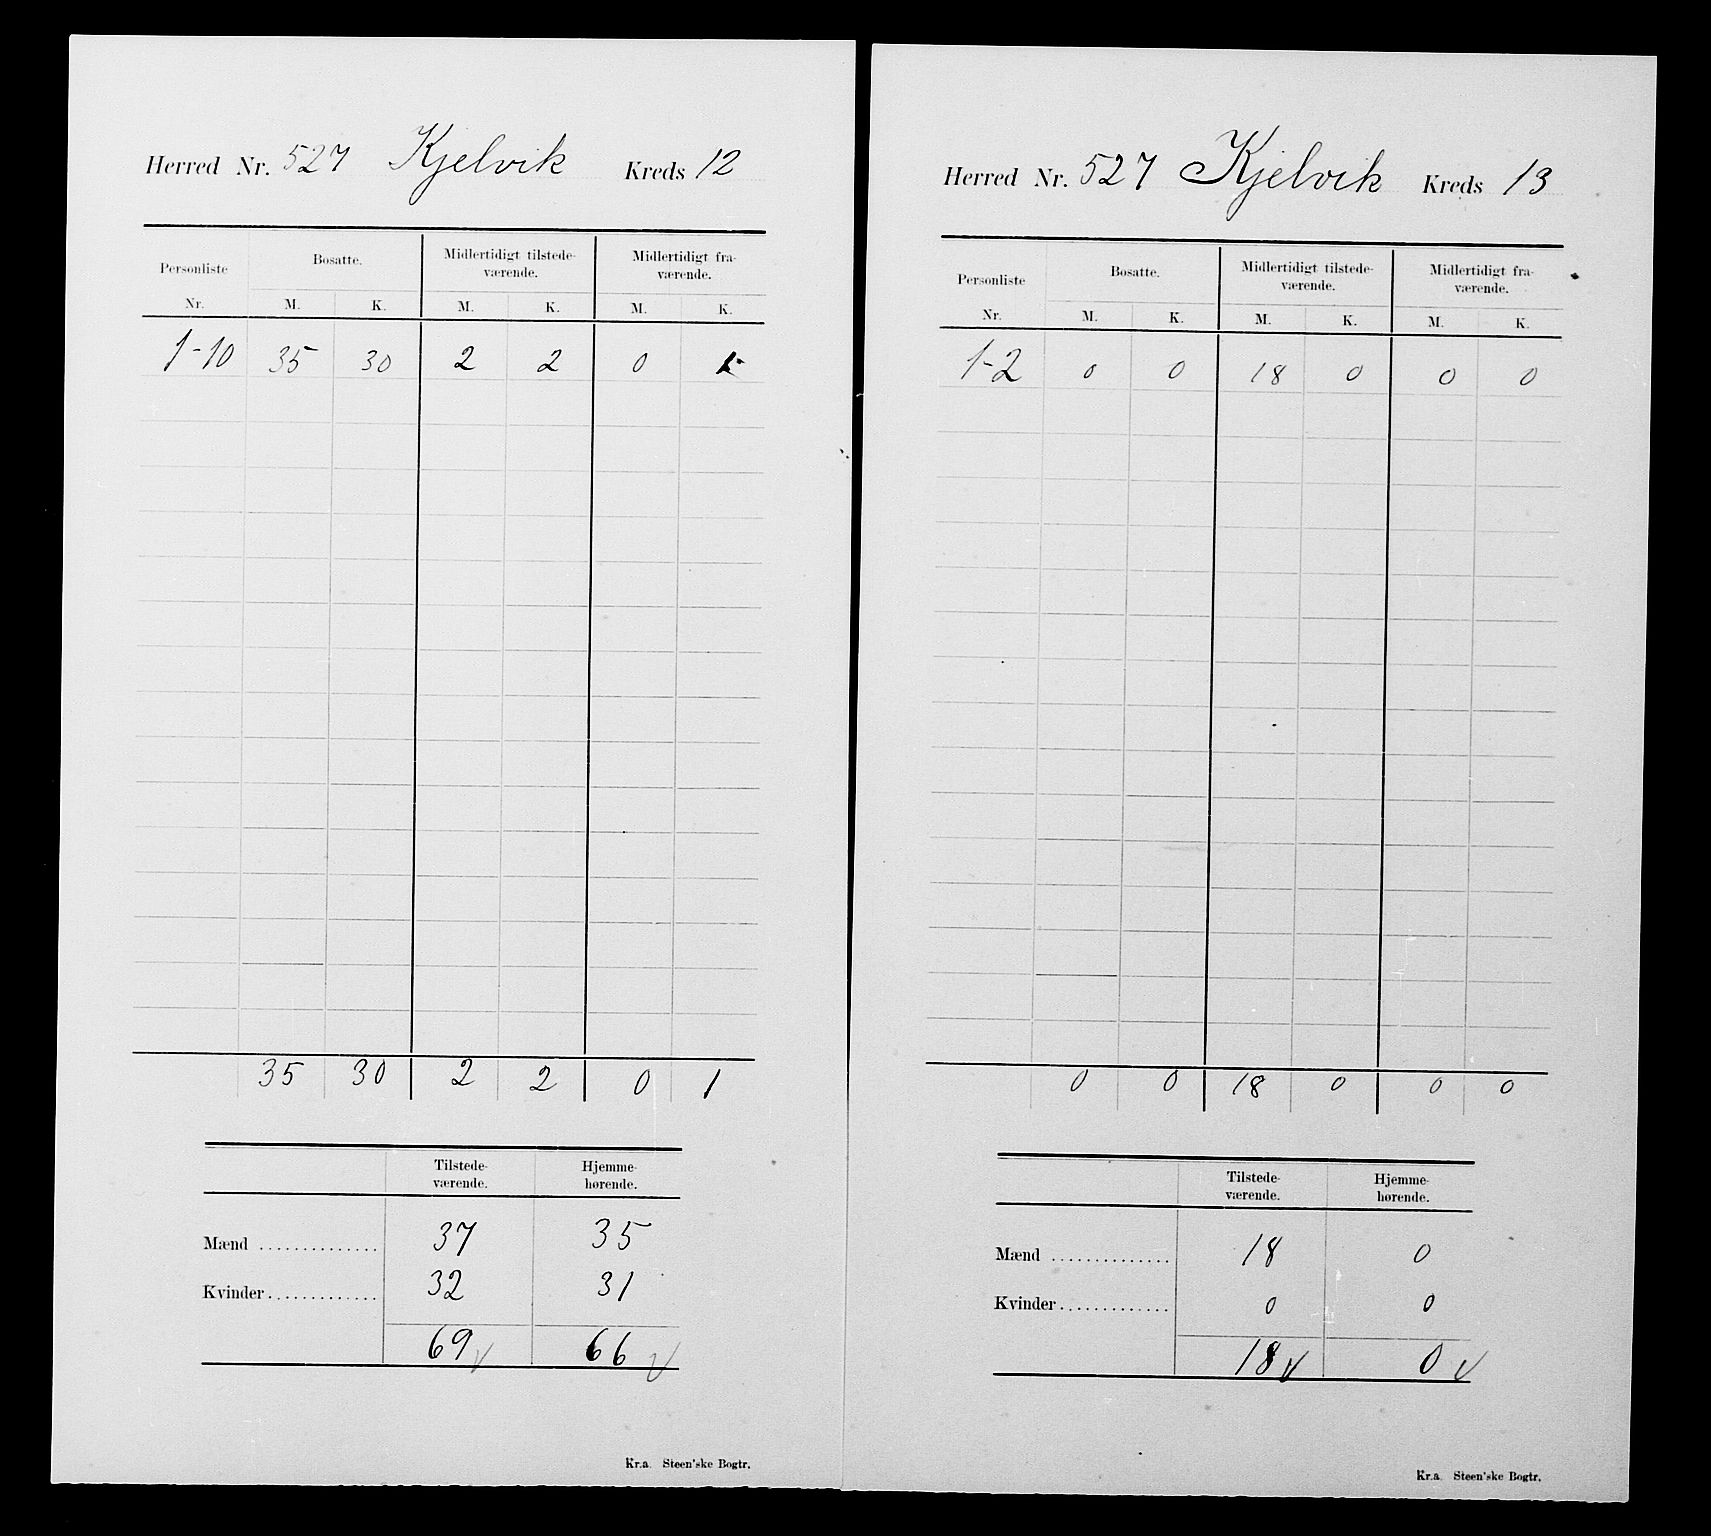 Herred Nr. 527 Kjelvik Kreds 12
Personliste Bosatte. Midlertidigt tilstede- Midlertidigt fra-
værende. værende.
Nr. M. K. M. K. M. K.
1-10 35 30 2 2 0 1
35 30 2 2 0 1
Tilstede- Hjemme-
værende. hørende.
Mænd .............. 37 35
Kvinder............. 32 31
69 66
Kr.a. Steen'ske Bogtr.
Herred Nr. 527 Kjelvik Kreds 13
Personliste Bosatte. Midlertidigt tilstede- Midlertidigt fra-
værende. værende.
Nr. M. K. M. K. M. K.
1-2 0 0 18 0 0 0
0 0 18 0 0 0
Tilstede- Hjemme-
værende. hørende.
Mænd .............. 18 0
Kvinder............. 0 0
18 0
Kr.a. Steen'ske Bogtr.